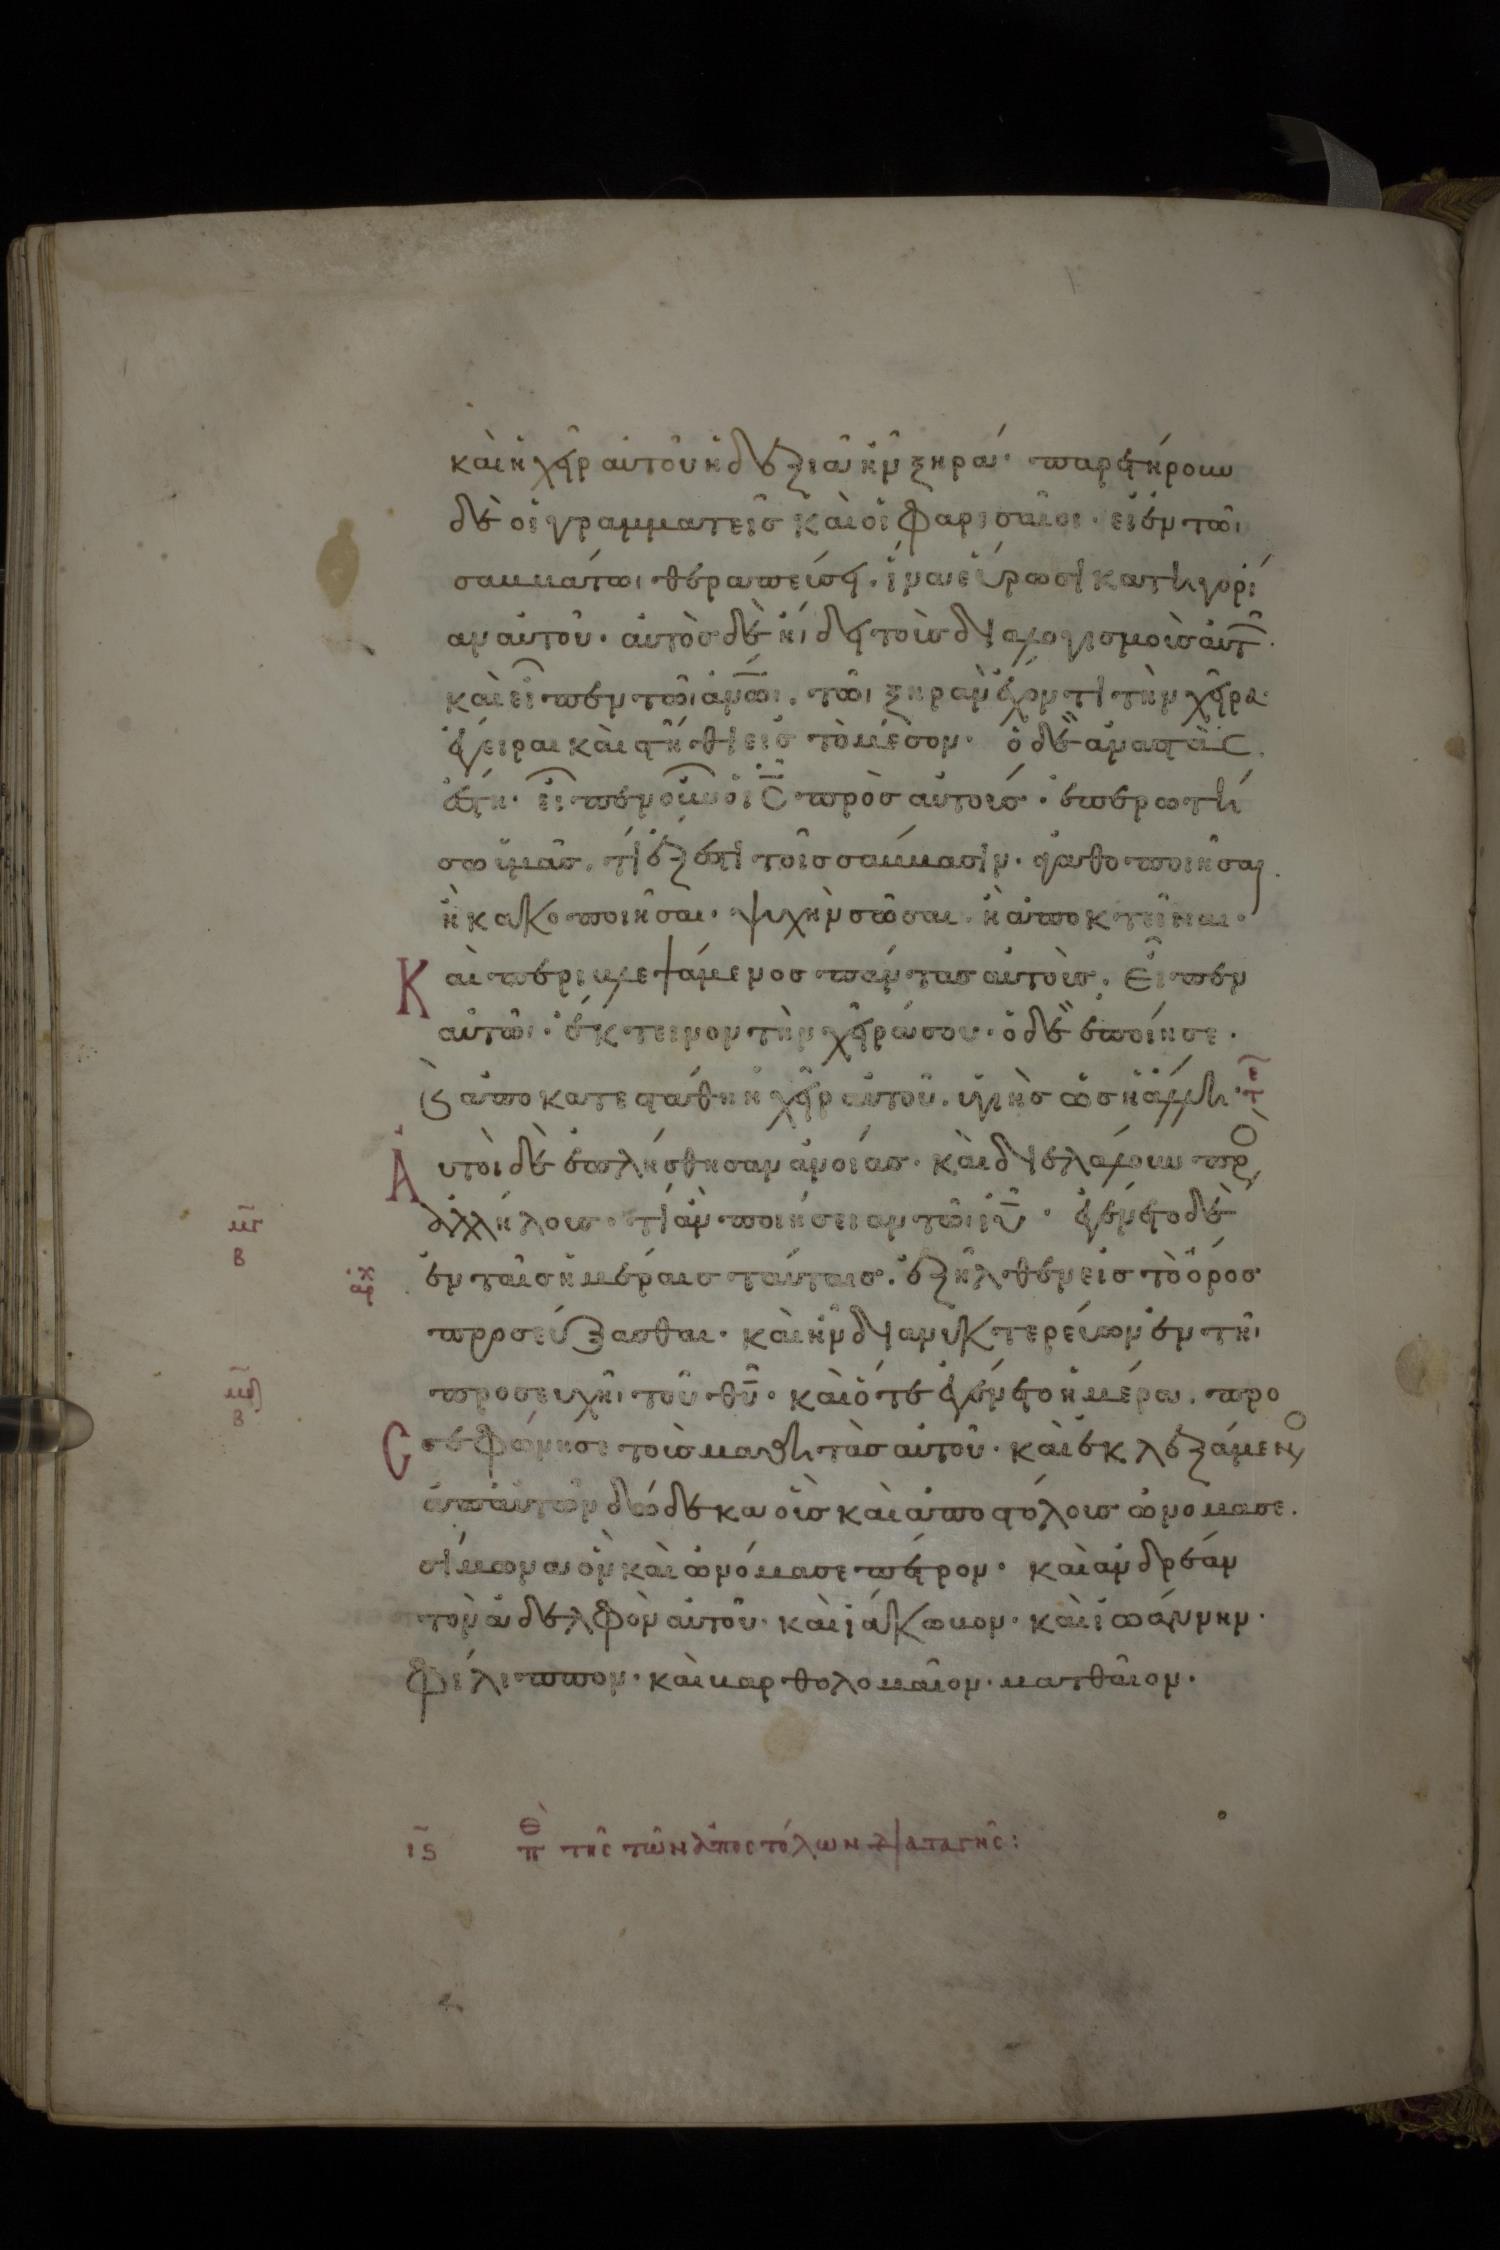 καὶ ἡ χεὶρ αὐτοῦ ἡ δεξιὰ ἦν ξηρά· παρετήρουν
δὲ οἱ γραμματεῖς καὶ οἱ φαρισαῖοι· εἰ ἐν τῶι
σαββάτωι θεραπεύσει. ἵνα εὕρωσι κατηγορί
αν αὐτοῦ· αὐτὸς δὲ ἤιδει τοὺς διαλογισμοὺς αὐτ῀.
καὶ εἶπεν τῶι ἀν̅ω̅ι. τῶι ξηρὰν ἔχοντι τὴν χεῖρα·
ἔγειραι καὶ στῆθι εἰς τὸ μέσον· ὁ δὲ ἀναστὰς
ἔστη· εἶπεν οὖν ὁ ι̅ς̅ πρὸς αὐτούς· ἐπερωτή
σω ὑμᾶς. τί ἔξεστι τοῖς σάββασιν· ἀγαθοποιῆσαι.
ἢ κακοποιῆσαι· ψυχὴν σῶσαι. ἢ ἀποκτεῖναι·
Καὶ περιβλεψάμενος πάντας αὐτοὺς. εἶπεν
αὐτῶι· ἔκτεινον τὴν χεῖρά σου· ὁ δὲ ἐποίησε·
ϗ ἀποκατεστάθη ἡ χεὶρ αὐτοῦ. ὑγιὴς ὡς ἡ ἄλλη· τε
Αὐτοὶ δὲ ἐπλήσθησαν ἀνοίας· καὶ διελάλουν πρὸ
ἀλλήλους· τί ἂν ποιήσειαν τῶι ι̅υ̅· ἐγένετο δὲ
μγ
β
ἐν ταῖς ἡμέραις ταύταις. ἐξῆλθεν εἰς τὸ ὄρος
αρχ
προσεύξασθαι· καὶ ἦν διανυκτερεύων ἐν τῆι
προσευχῆι τοῦ θ̅υ̅· καὶ ὅτε ἐγένετο ἡμέρα. προ
μδ
β
σεφώνησε τοὺς μαθητὰς αὐτοῦ· καὶ ἐκλεξάμενο
ἀπ' αὐτῶν δώδεκα οὓς καὶ ἀποστόλους ὠνόμασε.
σίμωνα ὃν καὶ ὠνόμασε πέτρον· καὶ ἀνδρέαν
τὸν ἀδελφὸν αὐτοῦ· καὶ ἰάκωβον· καὶ ἰωάννην·
φίλιππον· καὶ βαρθολομαῖον· ματθαῖον·
ις πθ τῆς τῶν ἀποστόλων διαταγῆς: